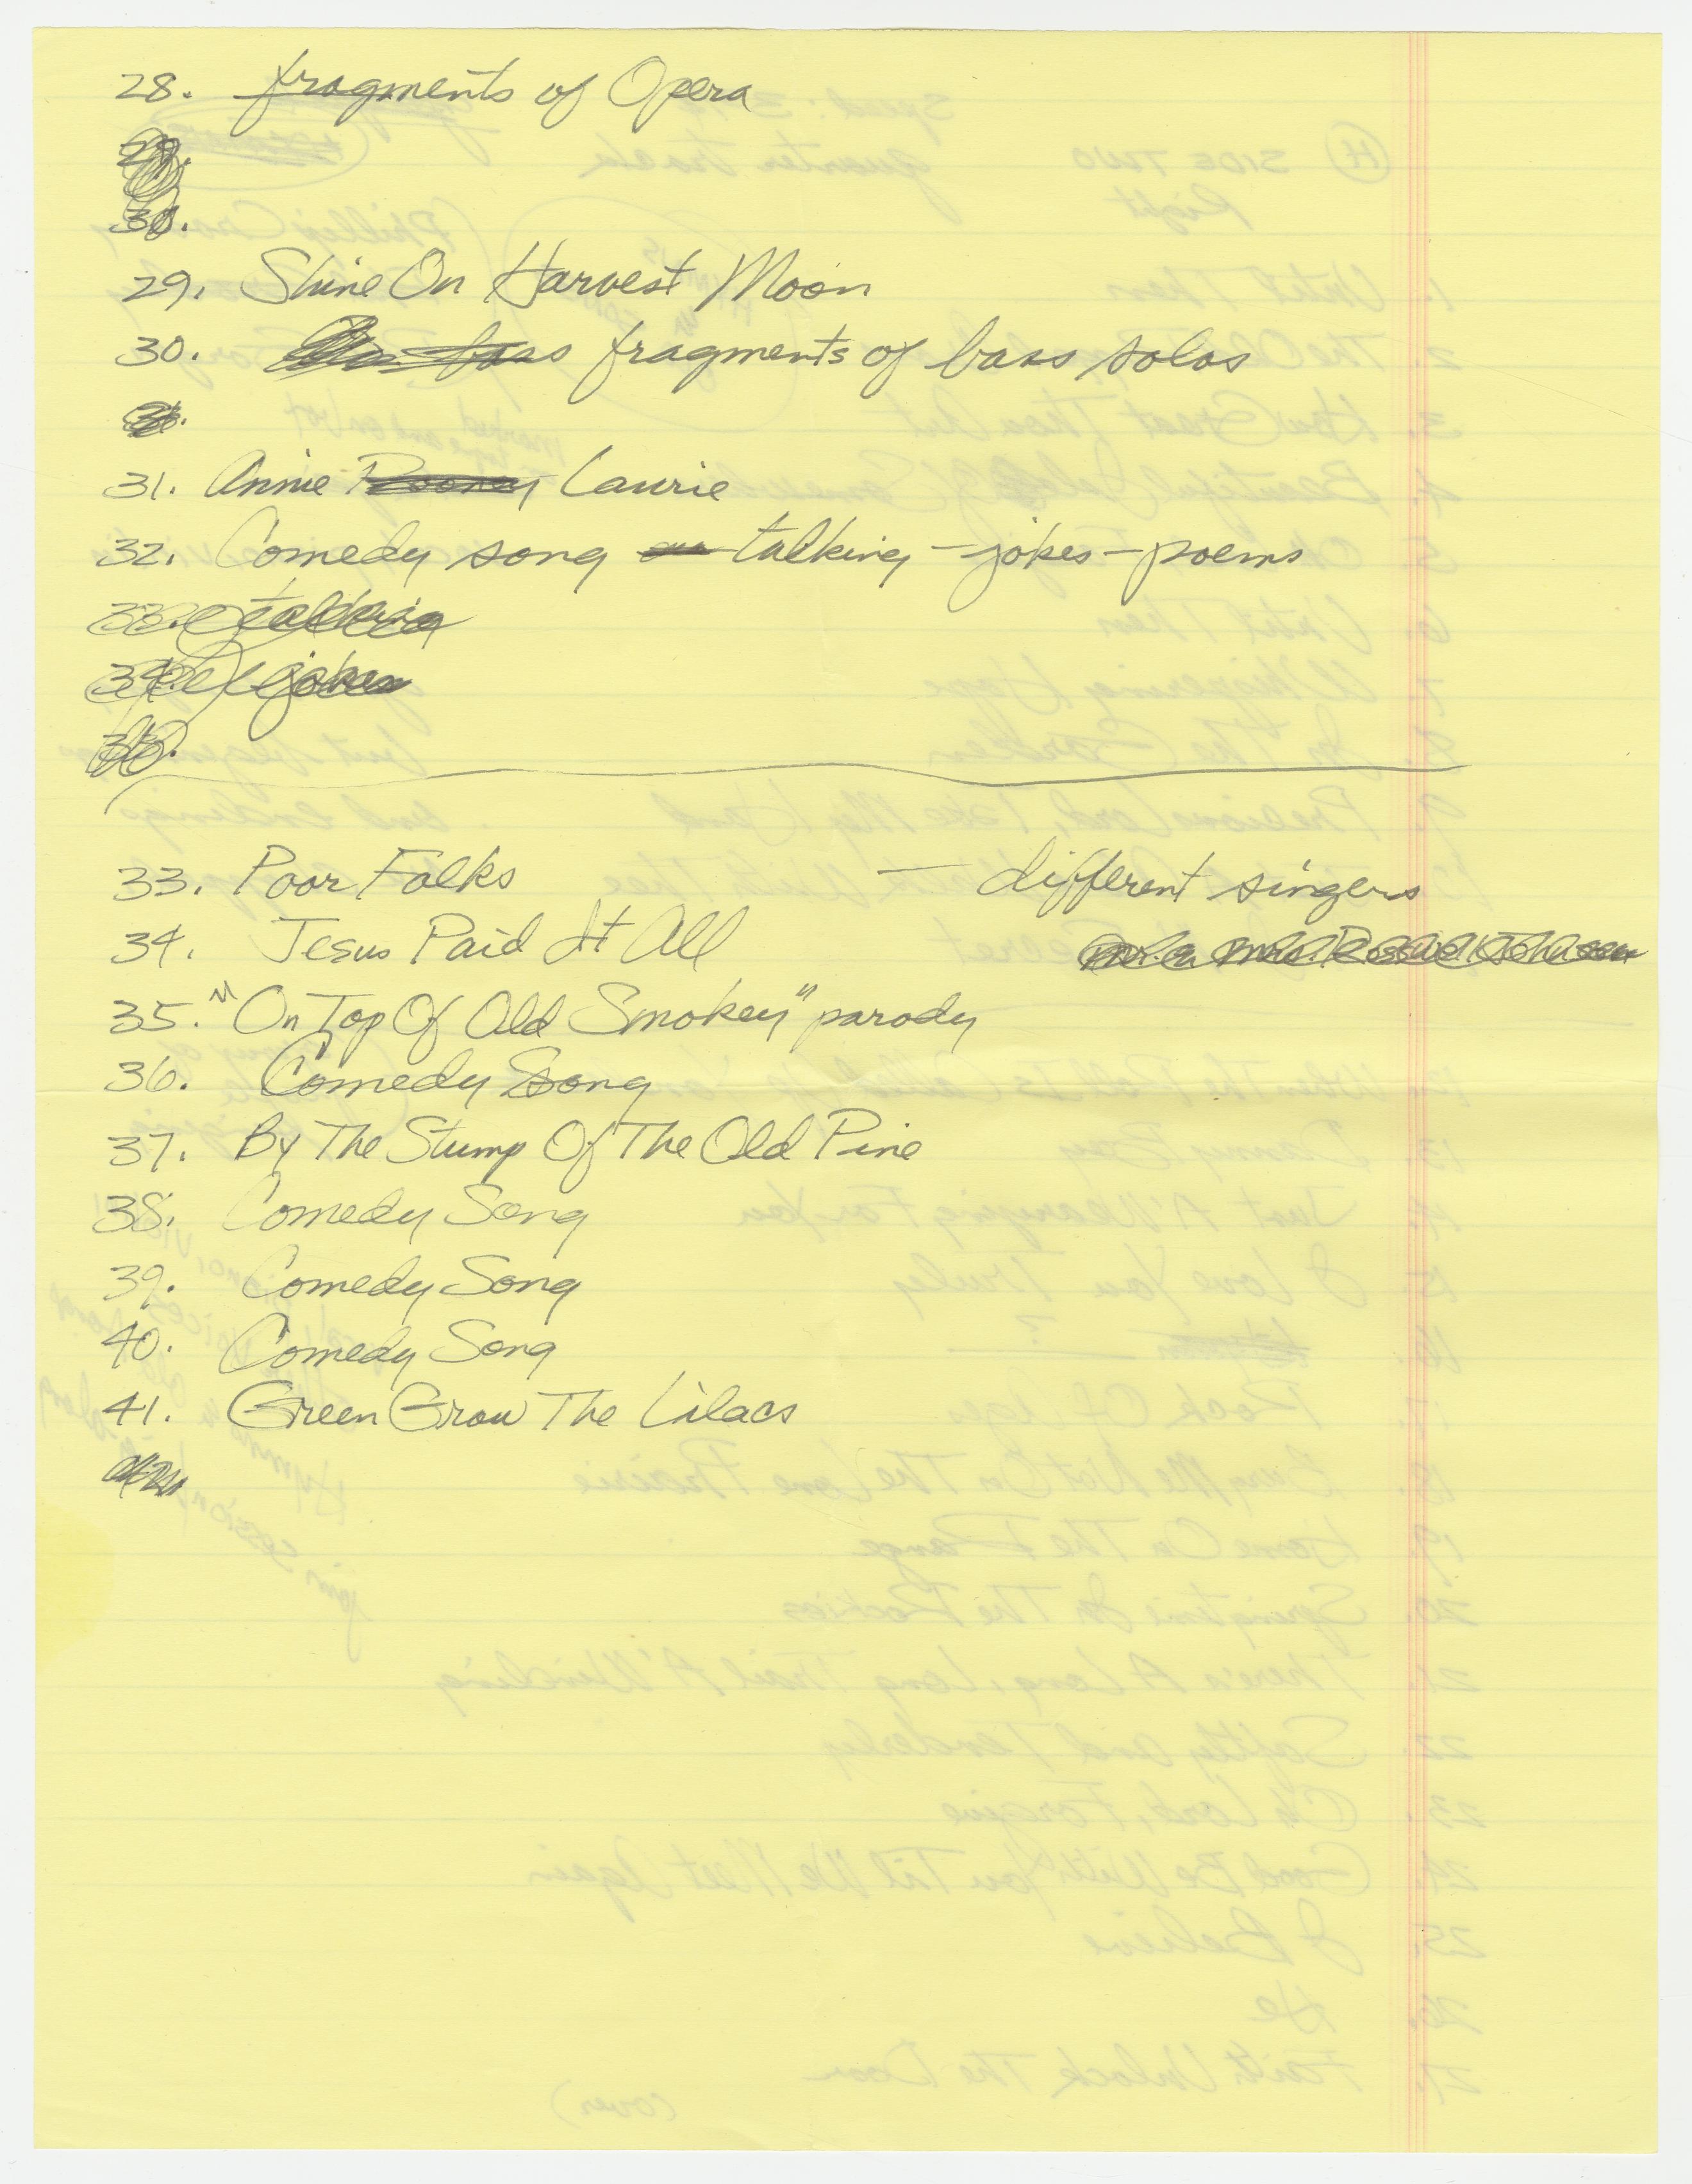 28. fragments of Opera
29.
30.
29. Shine On Harvest Moon
30. fragments of bass solos
31.
31. Annie Rooney Laurie
32. Comedy song talking - jokes - poems
33. talking
34. jokes
35.
33. Poor Folks — different singers
34. Jesus Paid It All
35. "On Top Of Old Smokey" parody
36. Comedy Song
37. By The Stump Of The Old Pine
38. Comedy Song
39. Comedy Song
40. Comedy Song
41. Green Grow The Lilacs
42.